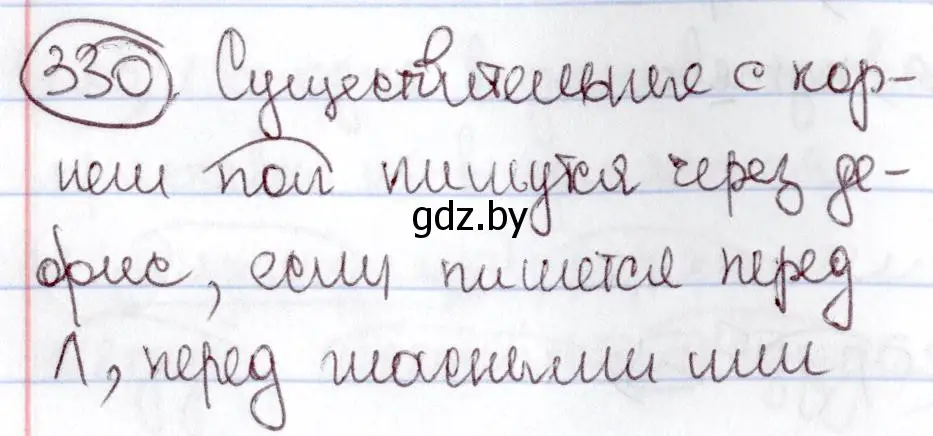 330. Существительные с кор-
нем пол пишутся через де-
gdz.by
фис, если пишется перед
Л, перед гласными или